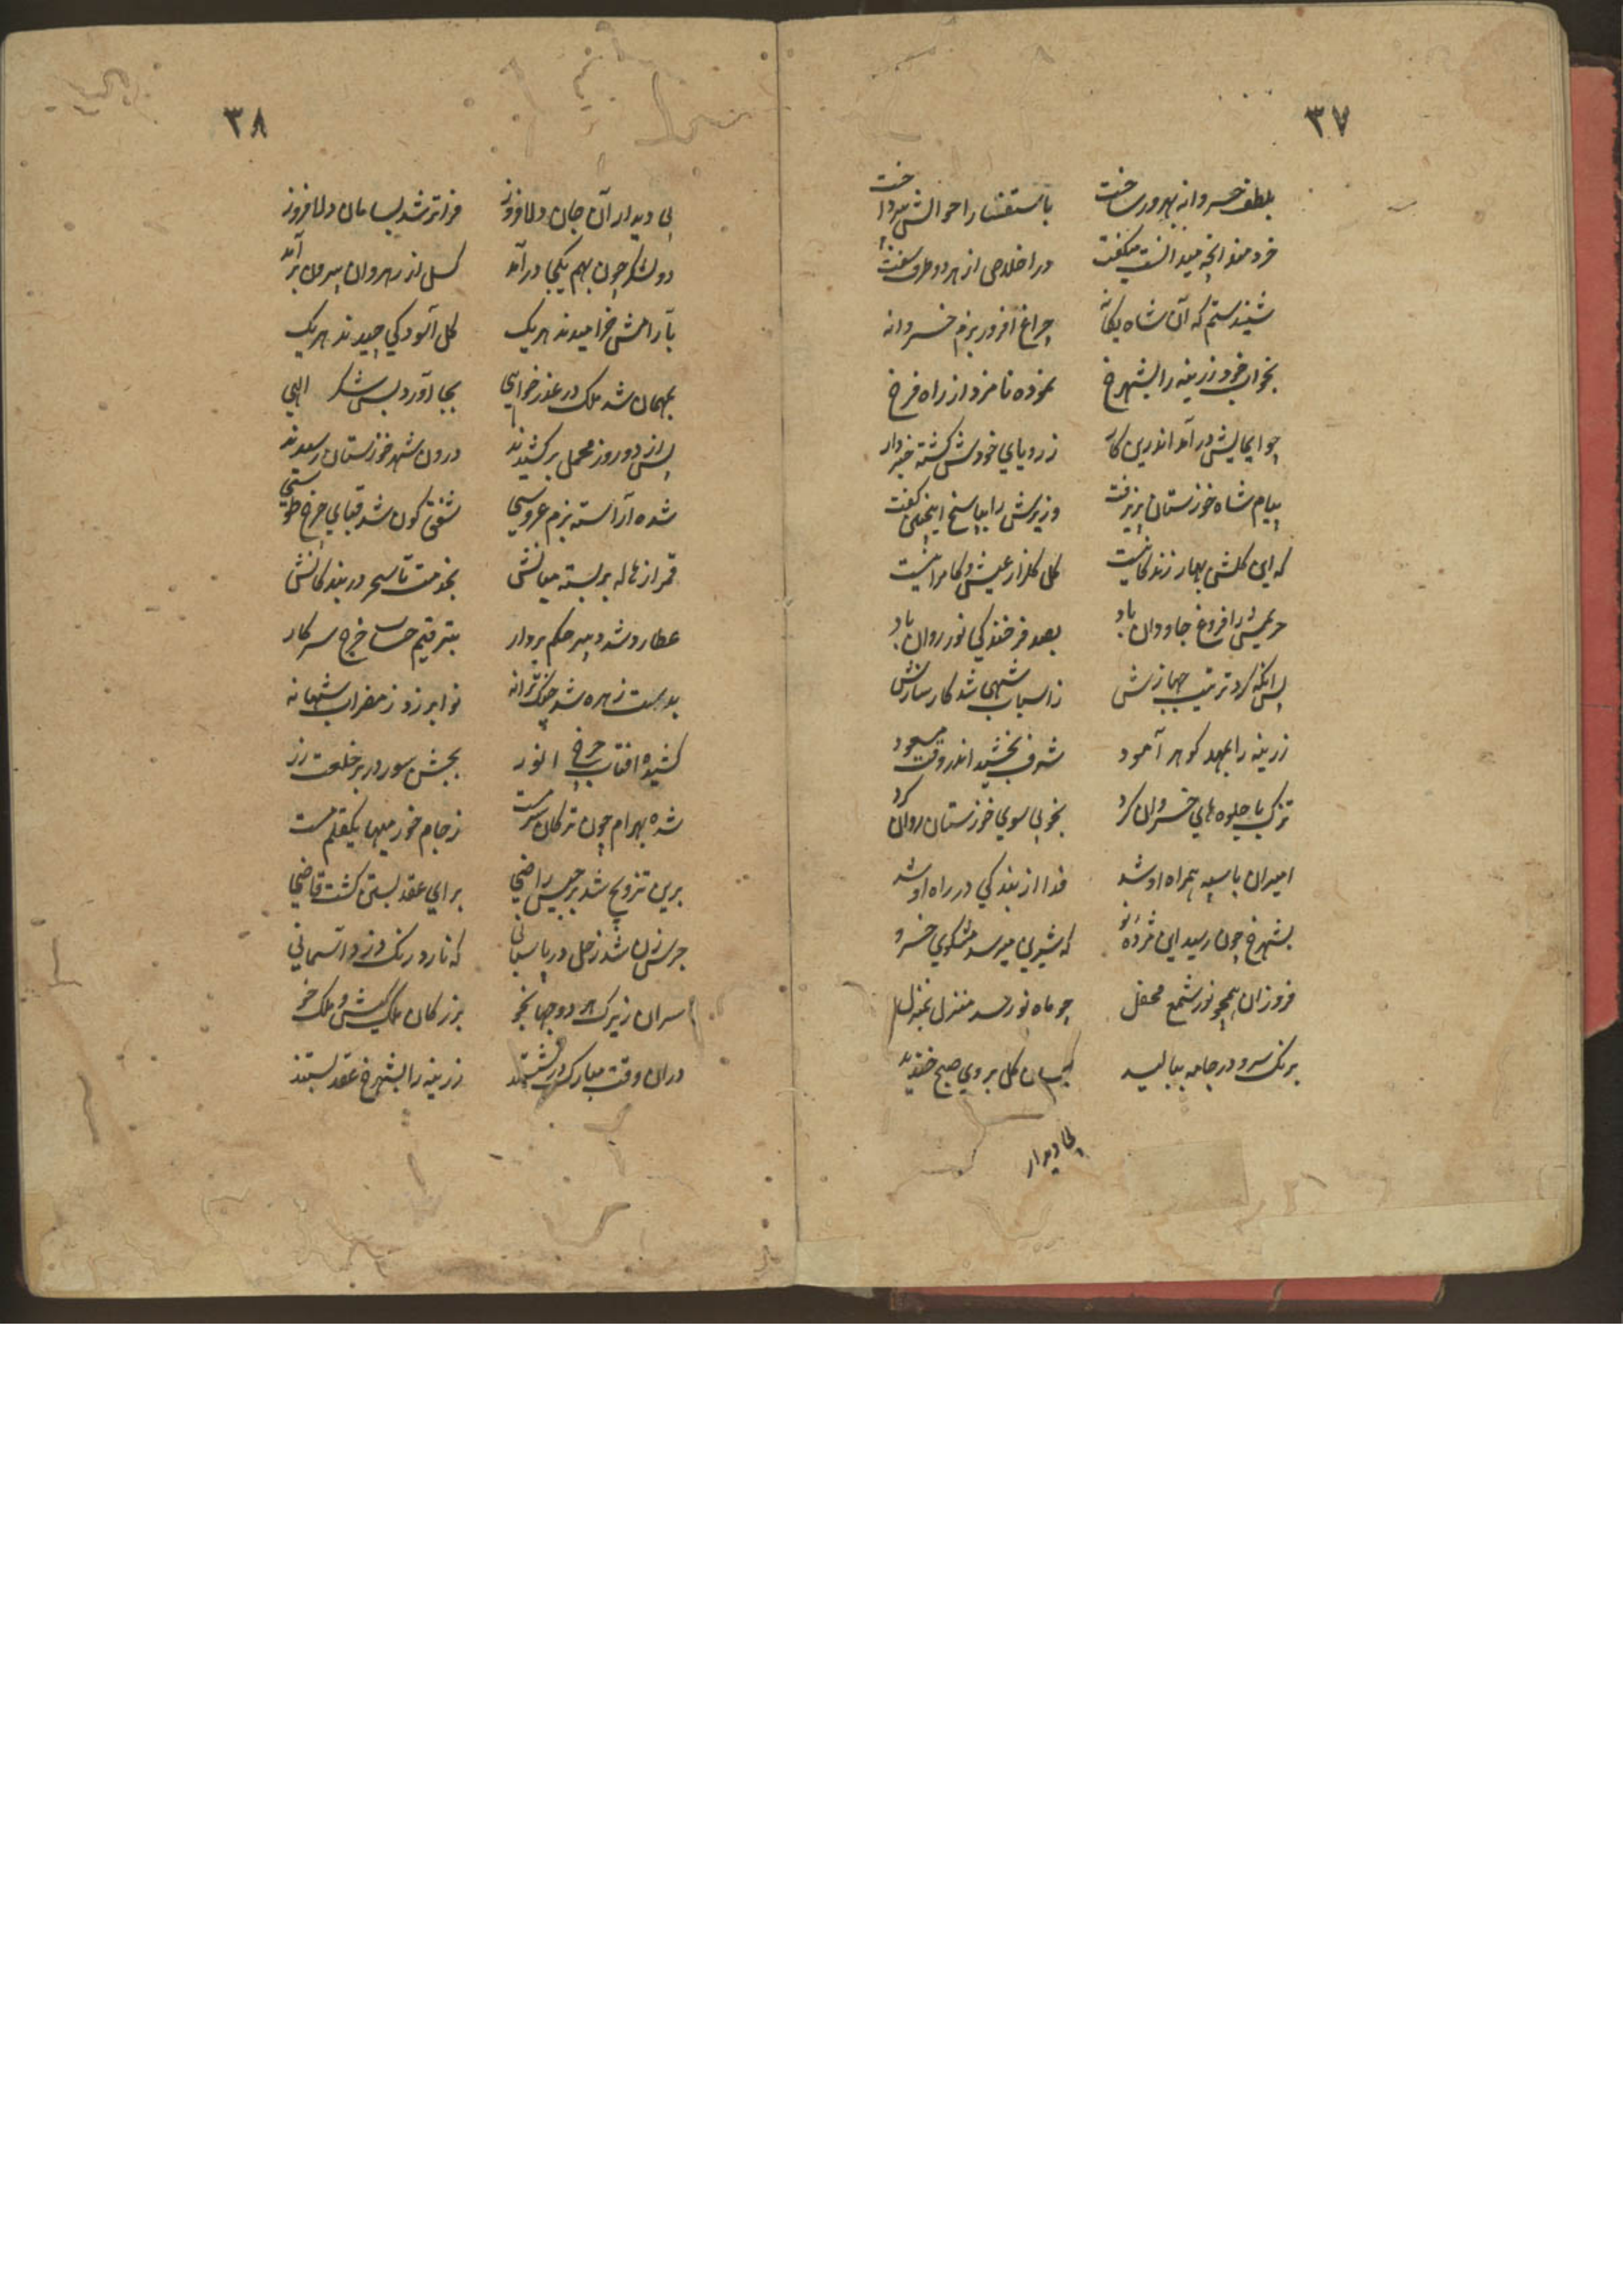 ۳۷
بلطف خسروانه بهرور ساخت باستفسار احوالش بپرداخت
خردمند انچه میدانست میکفت در اخلاص از هر دو طرف سفت
شنیدستم که آن شاه یکانه چراغ افروز بزم خسروانه
بخواب خود زرینه را بشهرخ نموده نامزد از راه فرخ
چو ایمایش در آمد اندرین کار ز رویای خودش کشته خبردار
پیام شاه خوزستان پذیرفت وزیرش را بپاسخ اینچنین کفت
که این کلشن بهار زندکانیست کل کلزار عیش و کامرانیست
حریمش را فروغ جاودان باد بصد فرخندکی نور روان باد
پس انکه کرد ترتیب جهازش ز اسباب شهی شد کار سازش
زرینه را بمهد کوهر آمود شرف بخشید اندر وقت مسعود
تزک با جلوه های خسروان کرد بخوبی سوی خوزستان روان کرد
امیران با سپه همراه او شد فدا از بندکی در راه او شد
بشهرخ چون رسید این مژده نو که شیرین میرسد مشکوی خسرو
فروزان همچو نور شمع محفل چو ماه نو رسد منزل بمنزل
برنک سرو در جامه ببالید بسان کل بروی صبح خندید
پی دیدار
۳۸
پی دیدار آن جان دلافروز فراتر شد بسامان دلافروز
دو لشکر چون بهم یکجا درآمد کسل از رهروان بیرون برآمد
بآرامش خرامیدند هریک کل آسودکی چیدند هریک
بمهمان شد ملک در عذر خواهی بجا آورد بس شکر الهی
پس از دو روز محمل برکشیدند درون شهر خوزستان رسیدند
شده آراسته بزم عروسی شفق کون شد قبای چرخ طوسی
قمر از هاله بر بسته میانش بخدمت تا سحر در بند کانش
عطارد شد دبیر حکم بردار بترقیم حساب خرج سرکار
بدست زهره شد چنک ترانه نوا بر زد ز مضراب شهانه
کشیده افتاب چرخ انور بجشن سور در بر خلعت زر
شده بهرام چون ترکان سرمست ز جام خور میها یکقلم مست
برین تزویج شد برجیس راضی برای عقد بستن کشت قاضی
جرس زن شد زحل در پاسبانی که نارد رنک دزد آسمانی
سران زیرک دو جهانجو بزرکان ملک کیش و ملک خو
دران وقت مبارک در نشستند زرینه را بشهرخ عقد بستند